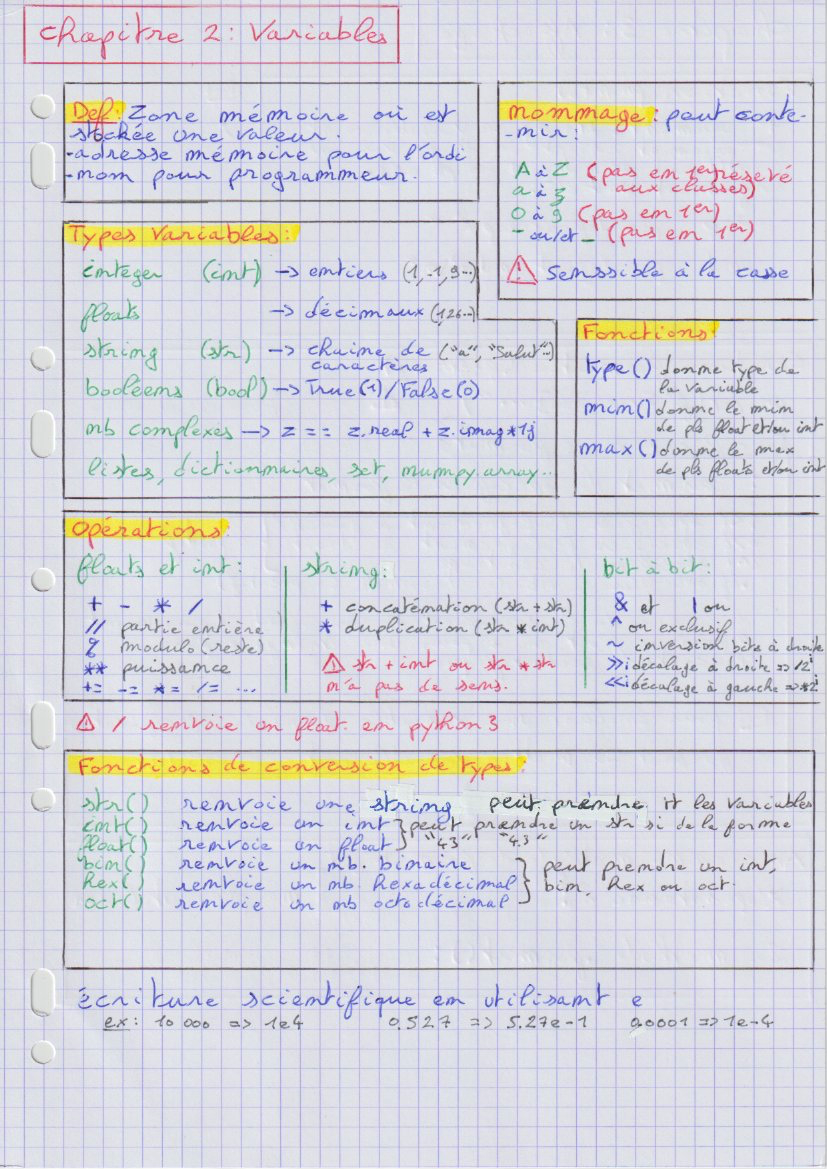 Chapitre 2 : Variables
Def : Zone mémoire où est
stockée une valeur.
-adresse mémoire pour l'ordi
-nom pour programmeur.
nommage : peut conte-
-nir :
A à Z (pas en 1er, réservé
aux classes)
a à z
0 à 9 (pas en 1er)
- ou/et _ (pas en 1er)
⚠ Senssible à la casse
Types Variables :
integer (int) -> entiers (1, -1, 9...)
floats -> décimaux (1,26...)
string (str) -> chaine de ("a", "Salut"...)
caractères
booléens (bool) -> True(1)/False(0)
nb complexes -> z == z.real + z.imag*1j
listes, dictionnaires, set, numpy.array...
Fonctions :
type() donne type de
la variable
min() donne le min
de pls float et/ou int
max() donne le max
de pls floats et/ou int
Opérations :
floats et int :
+ - * /
// partie entière
% modulo (reste)
** puissance
+= -= *= /= ...
string :
+ concaténation (str + str)
* duplication (str * int)
⚠ str + int ou str * str
n'a pas de sens.
bit à bit :
& et | ou
^ ou exclusif
~ inversion bits à droite
>>i décalage à droite => /2^i
<<i décalage à gauche => *2^i
⚠ / renvoie un float. en python 3
Fonctions de conversion de types :
str() renvoie une string peut prendre tt les variables
int() renvoie un int } peut prendre un str si de la forme
float() renvoie un float } "43" "4.3"
bin() renvoie un nb. binaire
hex() renvoie un nb. hexadécimal } peut prendre un int,
oct() renvoie un nb octodécimal } bin, hex ou oct.
écriture scientifique en utilisant e
ex : 10 000 => 1e4 0.527 => 5.27e-1 0.0001 => 1e-4